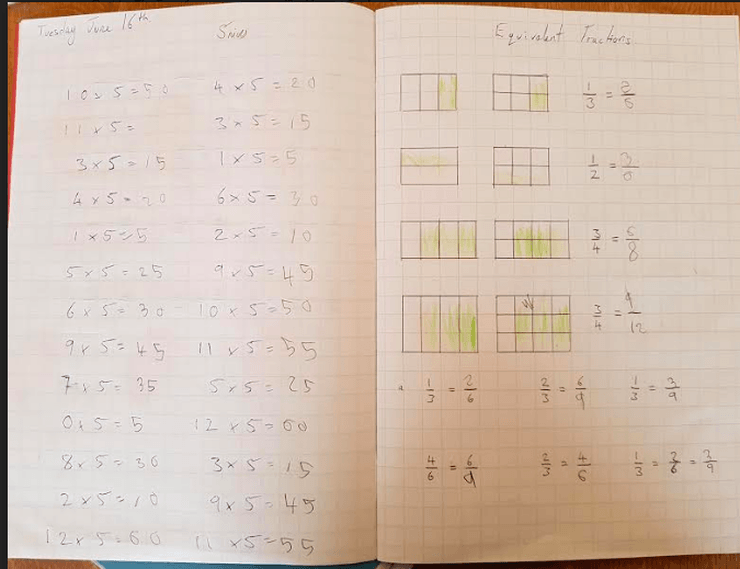 Tuesday June 16th
5 min
10 x 5 = 50
4 x 5 = 20
11 x 5 =
3 x 5 = 15
3 x 5 = 15
1 x 5 = 5
4 x 5 = 20
6 x 5 = 30
1 x 5 = 5
2 x 5 = 10
5 x 5 = 25
9 x 5 = 45
6 x 5 = 30
10 x 5 = 50
9 x 5 = 45
11 x 5 = 55
7 x 5 = 35
5 x 5 = 25
0 x 5 = 5
12 x 5 = 60
8 x 5 = 30
3 x 5 = 15
2 x 5 = 10
9 x 5 = 45
12 x 5 = 60
11 x 5 = 55
Equivalent Fractions
1/3 = 2/6
1/2 = 3/6
3/4 = 6/8
3/4 = 9/12
1/3 = 2/6 2/3 = 6/9 1/3 = 3/9
4/6 = 6/9 2/3 = 4/6 1/3 = 2/6 = 3/9